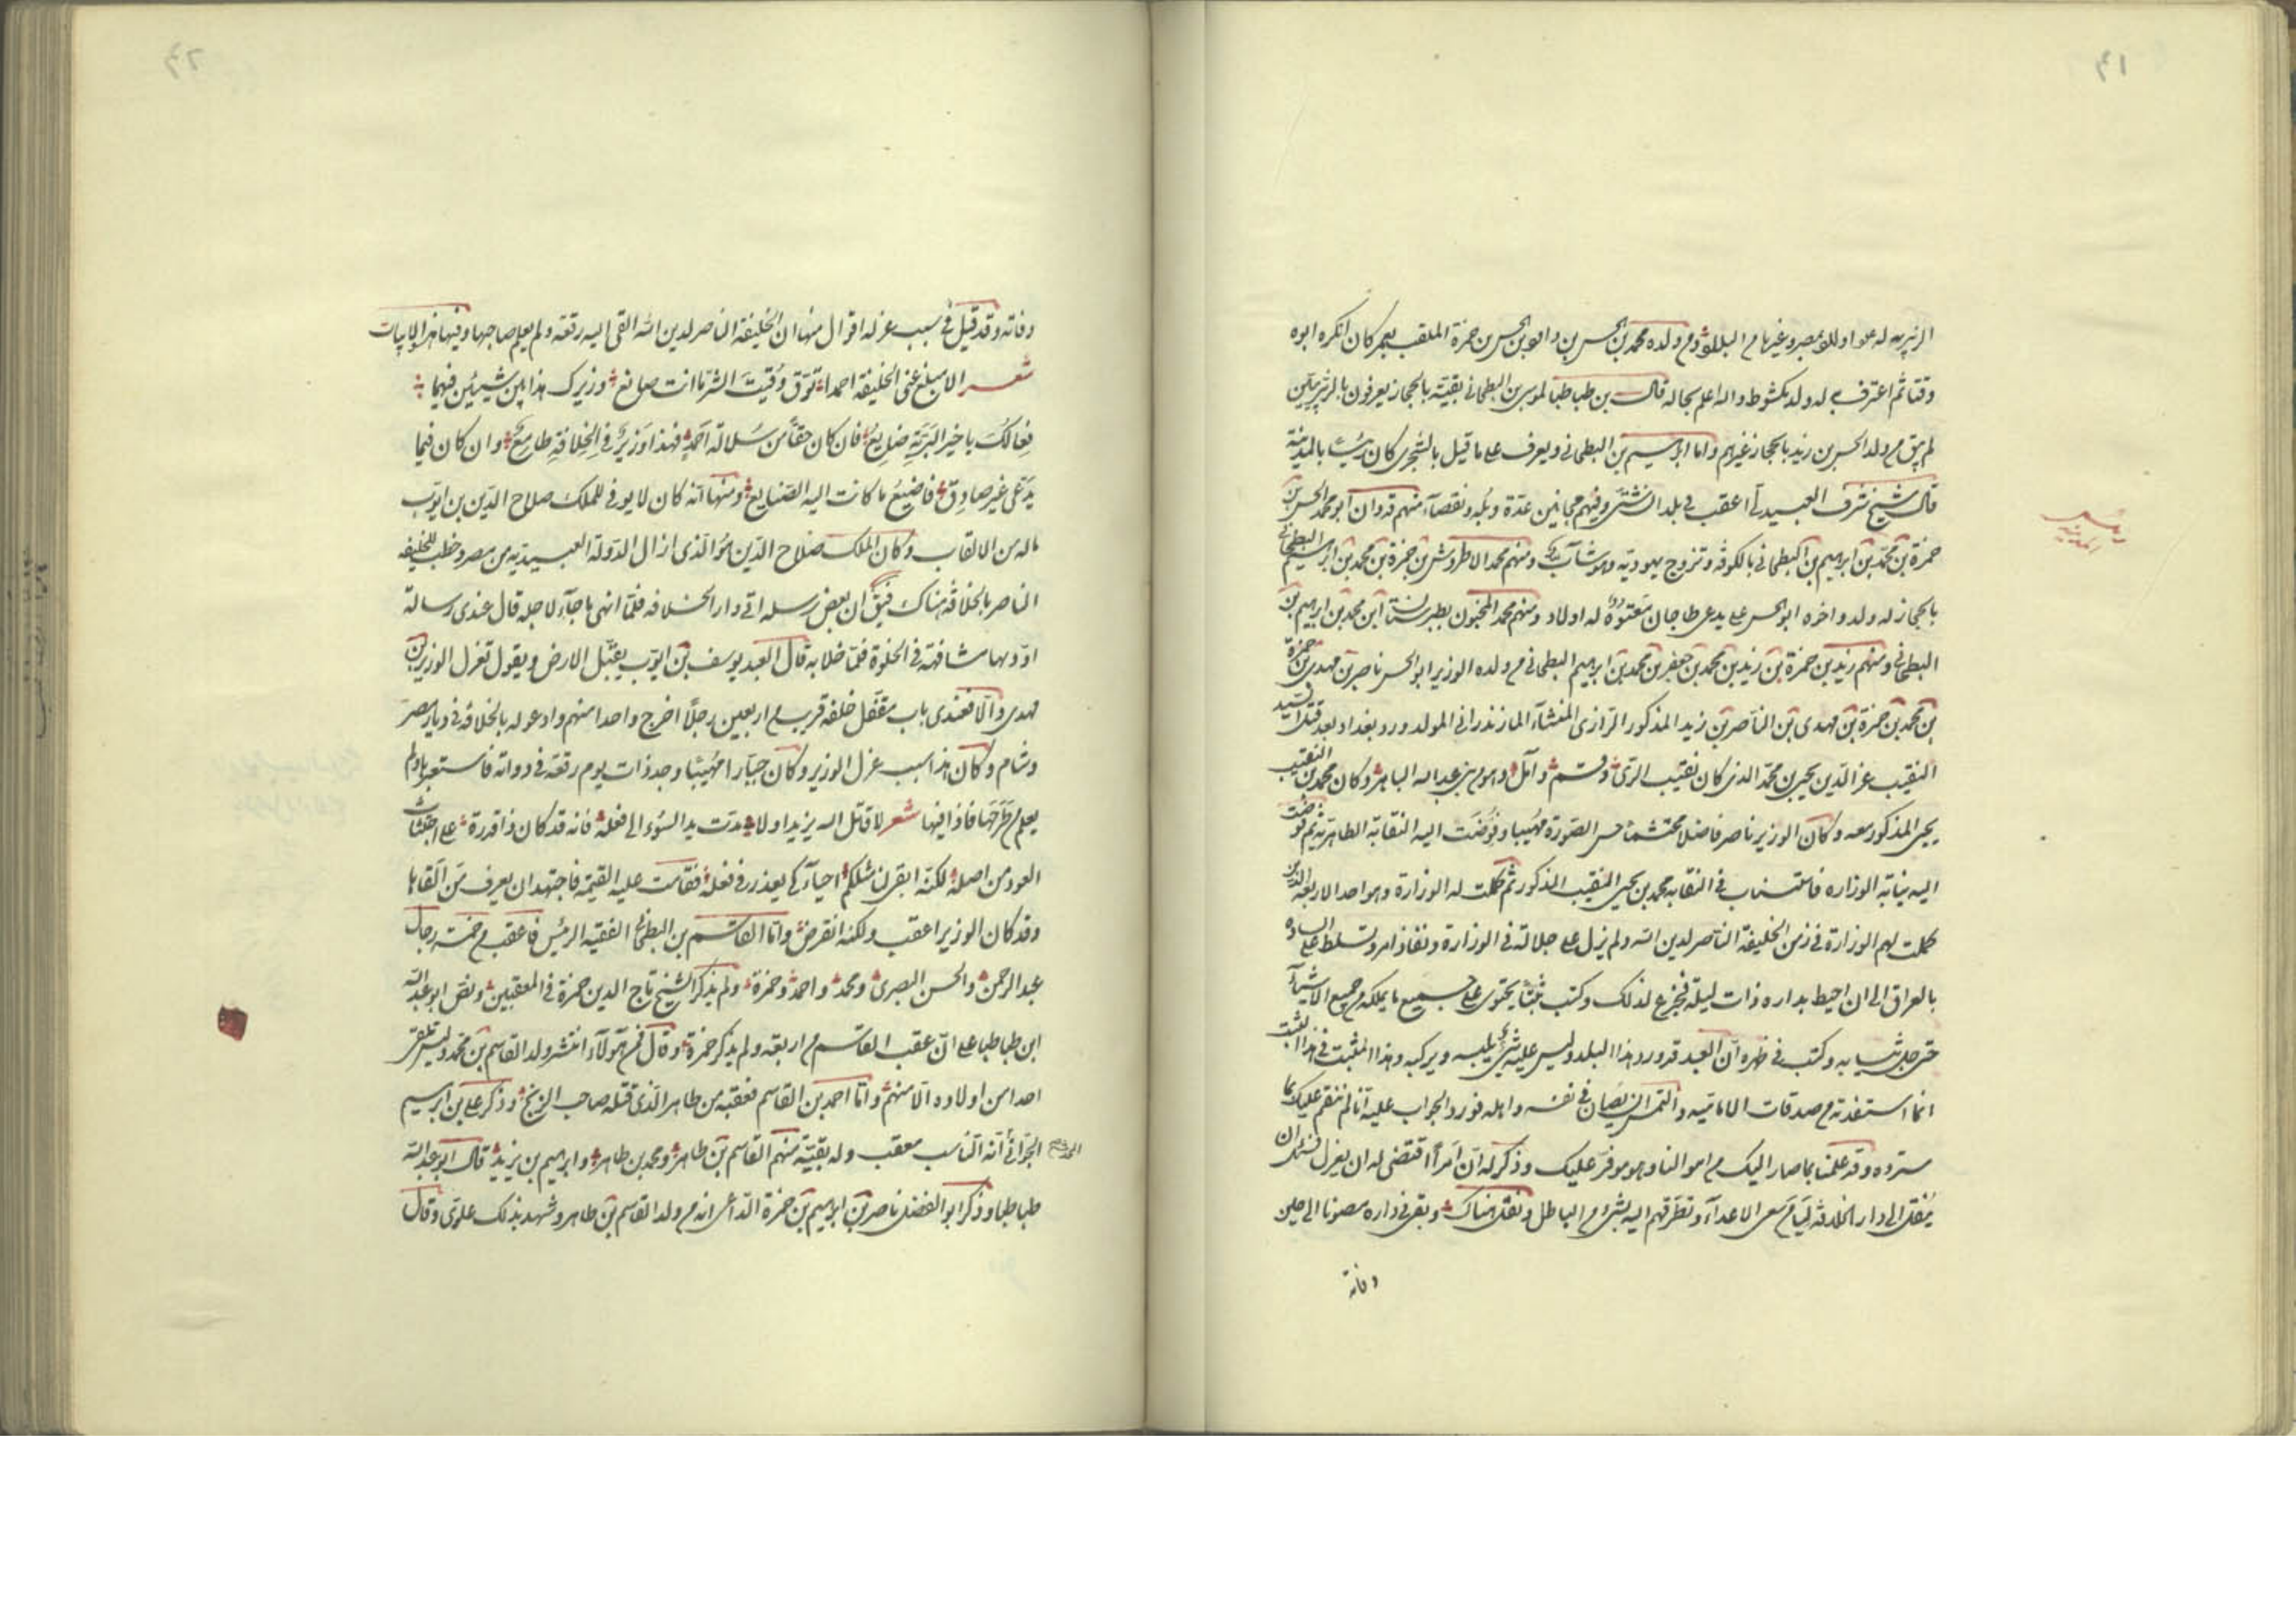 ٤١
وقتا ثم اعترف به له ولد بكشوط والله اعلم بحاله قال بن طباطبا لموسى بن البطحاني بقية بالحجاز يعرفون
لم يبق من ولد الحسن بن زيد بالحجاز غيرهم واما ابراهيم بن البطحاني ويعرف على ما قيل بالشجرى كان رئيسا بالمدينة
قال شيخ شرف العبيدلى اعقب فى بلد شتى وفيهم مجانين عدة وبله ونقصاء منهم ابو محمد الحسن بن
حمزة بن محمد بن ابراهيم بن البطحانى بالكوفة وتزوج يهودية ومنهم محمد الاطروش بن حمزة بن محمد بن ابراهيم البطحانى
بالحجاز له ولد واخوه ابو الحسن على يدعى طاجان معتوه له اولاد ومنهم محمد المجنون بطبرستان ابن محمد بن ابراهيم بن
البطحانى ومنهم زيد بن حمزة بن زيد بن محمد بن جعفر بن محمد بن ابراهيم البطحانى من ولده الوزير ابو الحسن ناصر بن مهدى بن حمزة
بن محمد بن حمزة بن مهدى بن الناصر بن زيد المذكور الرازى المنشأ المازندرانى المولد ورد بغداد بعد قتل السيد
النقيب عز الدين يحيى بن محمد الذى كان نقيب الرى وقم وآمل وهو من بنى عبد الله الباهر وكان محمد بن النقيب
يحيى المذكور معه وكان الوزير ناصر فاضلا محتشما حسن الصورة مهيبا وفوضت اليه النقابة الطاهرية ثم فوضت
اليه نيابة الوزاره فاستناب فى النقابه محمد بن يحيى النقيب المذكور ثم كملت له الوزارة وهو احد الاربعة الذين
كملت لهم الوزارة فى زمن الخليفة الناصر لدين الله ولم يزل على جلالته فى الوزارة ونفاذ امره وتسلط على الساده
بالعراق الى ان احيط بداره ذات ليلة فجزع لذلك وكتب ثبتا يحتوى على جميع ما يملكه من جميع الاشياء
حتى حلى ثيابه وكتب فى ظهره ان العبد قد ورد هذا البلد وليس عليه شئ يلبسه ويركبه وهذا المثبت فى هذا الثبت
انما استفدته من صدقات الاماميه والتمس ان يصان فى نفسه واهله فورد الجواب عليه انا لم ننقم عليك بما
سترده وقد علمنا بما صار اليك من اموالنا وهو موفر عليك وذكر له ان امرا اقتضى له ان يعزل فسئل ان
ينقل الى دار الخلافة من سعى الاعداء وتطرقهم اليه بشئ من الباطل ونقل هناك وبقى فى داره مصونا الى حين
وفاته
٤٢
وفاته وقد قيل فى سبب عزله اقوال منها ان الخليفة الناصر لدين الله القى اليه رقعة ولم يعلم صاحبها وفيها هذه الابيات
شعر الا مبلغ عنى الخليفة احمدا توق وقيت الشر ما انت صانع وزيرك هذا بين شيئين فيهما
فعالك يا خير البرية ضايع فان كان حقا من سلالة احمد فهذا وزير فى الخلافة طامع وان كان فيما
يدعى غير صادق فاضيع ما كانت اليه الصنايع ومنها انه كان لا يوفى للملك صلاح الدين بن ايوب
ماله من الالقاب وكان الملك صلاح الدين هو الذى ازال الدولة العبيديه من مصر وخطب للخليفه
الناصر بالخلافة هناك ان بعض رسله اتى دار الخلافه فلما انهى ما جاء لاجله قال عندى رسالة
اؤديها مشافهة فى الخلوة فلما خلا به قال العبد يوسف بن ايوب يقبل الارض ويقول تعزل الوزير بن
مهدى والا فعندى باب مقفل خلفه قريب من اربعين رجلا اخرج واحدا منهم وادعو له بالخلافة فى ديار مصر
وشام وكان هذا سبب عزل الوزير وكان جبارا مهيبا وجد ذات يوم رقعة فى دواته فاستعبر بها ولم
يعلم من طرحها فاذا فيها شعر لا قاتل الله يزيد ولا مدت يد السوء الى فعله فانه قد كان ذا قدرة على اجتثاث
العود من اصله لكنه ابقى لنا مثلكم احياء كى يعذر فى فعله فقامت عليه القيمة فاجتهد ان يعرف من القاها
وقد كان الوزير اعقب ولكنه انقرض واما القاسم بن البطحانى الفقيه الرئيس فاعقب من خمسة رجال
عبد الرحمن والحسن البصرى ومحمد واحمد وحمزة ولم يذكر الشيخ تاج الدين حمزة فى المعقبين ونص ابو عبد الله
ابن طباطبا على ان عقب القاسم من اربعة ولم يذكر حمزة وقال فمن هؤلاء انتشر ولد القاسم بن محمد
احدا من اولاده الا منهم واما احمد بن القاسم فعقبه من طاهر الذى قتله صاحب الزنج وذكر على بن ابراهيم
الجوانى انه الناسب معقب وله بقية منهم القاسم بن طاهر ومحمد بن طاهر وابراهيم بن يزيد قال ابو عبد الله
طباطبا وذكر ابو الفضل ناصر بن ابراهيم بن حمزة الداعى انه من ولد القاسم بن طاهر وشهد بذلك علوى وقال